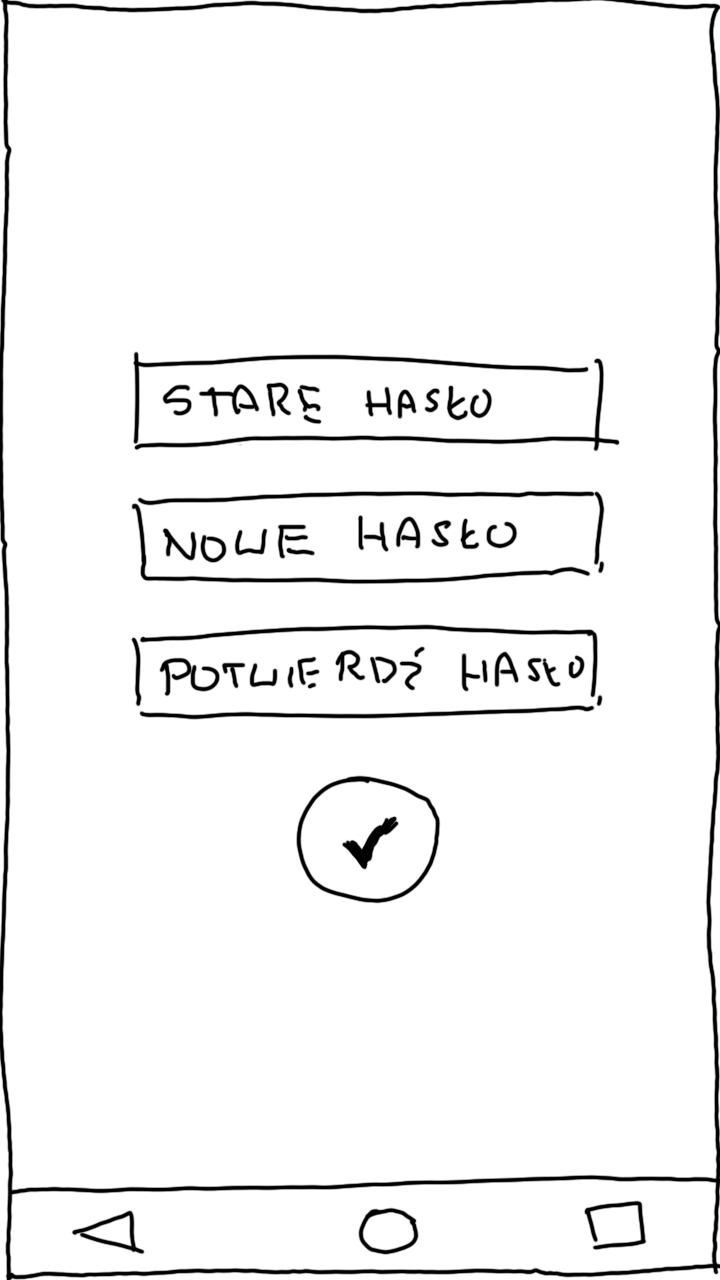 STARE HASŁO
NOWE HASŁO
POTWIERDŹ HASŁO